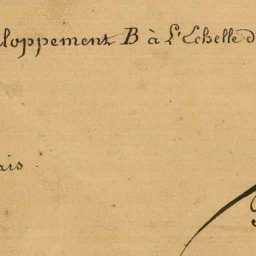 loppement B à l'Echelle d
ais